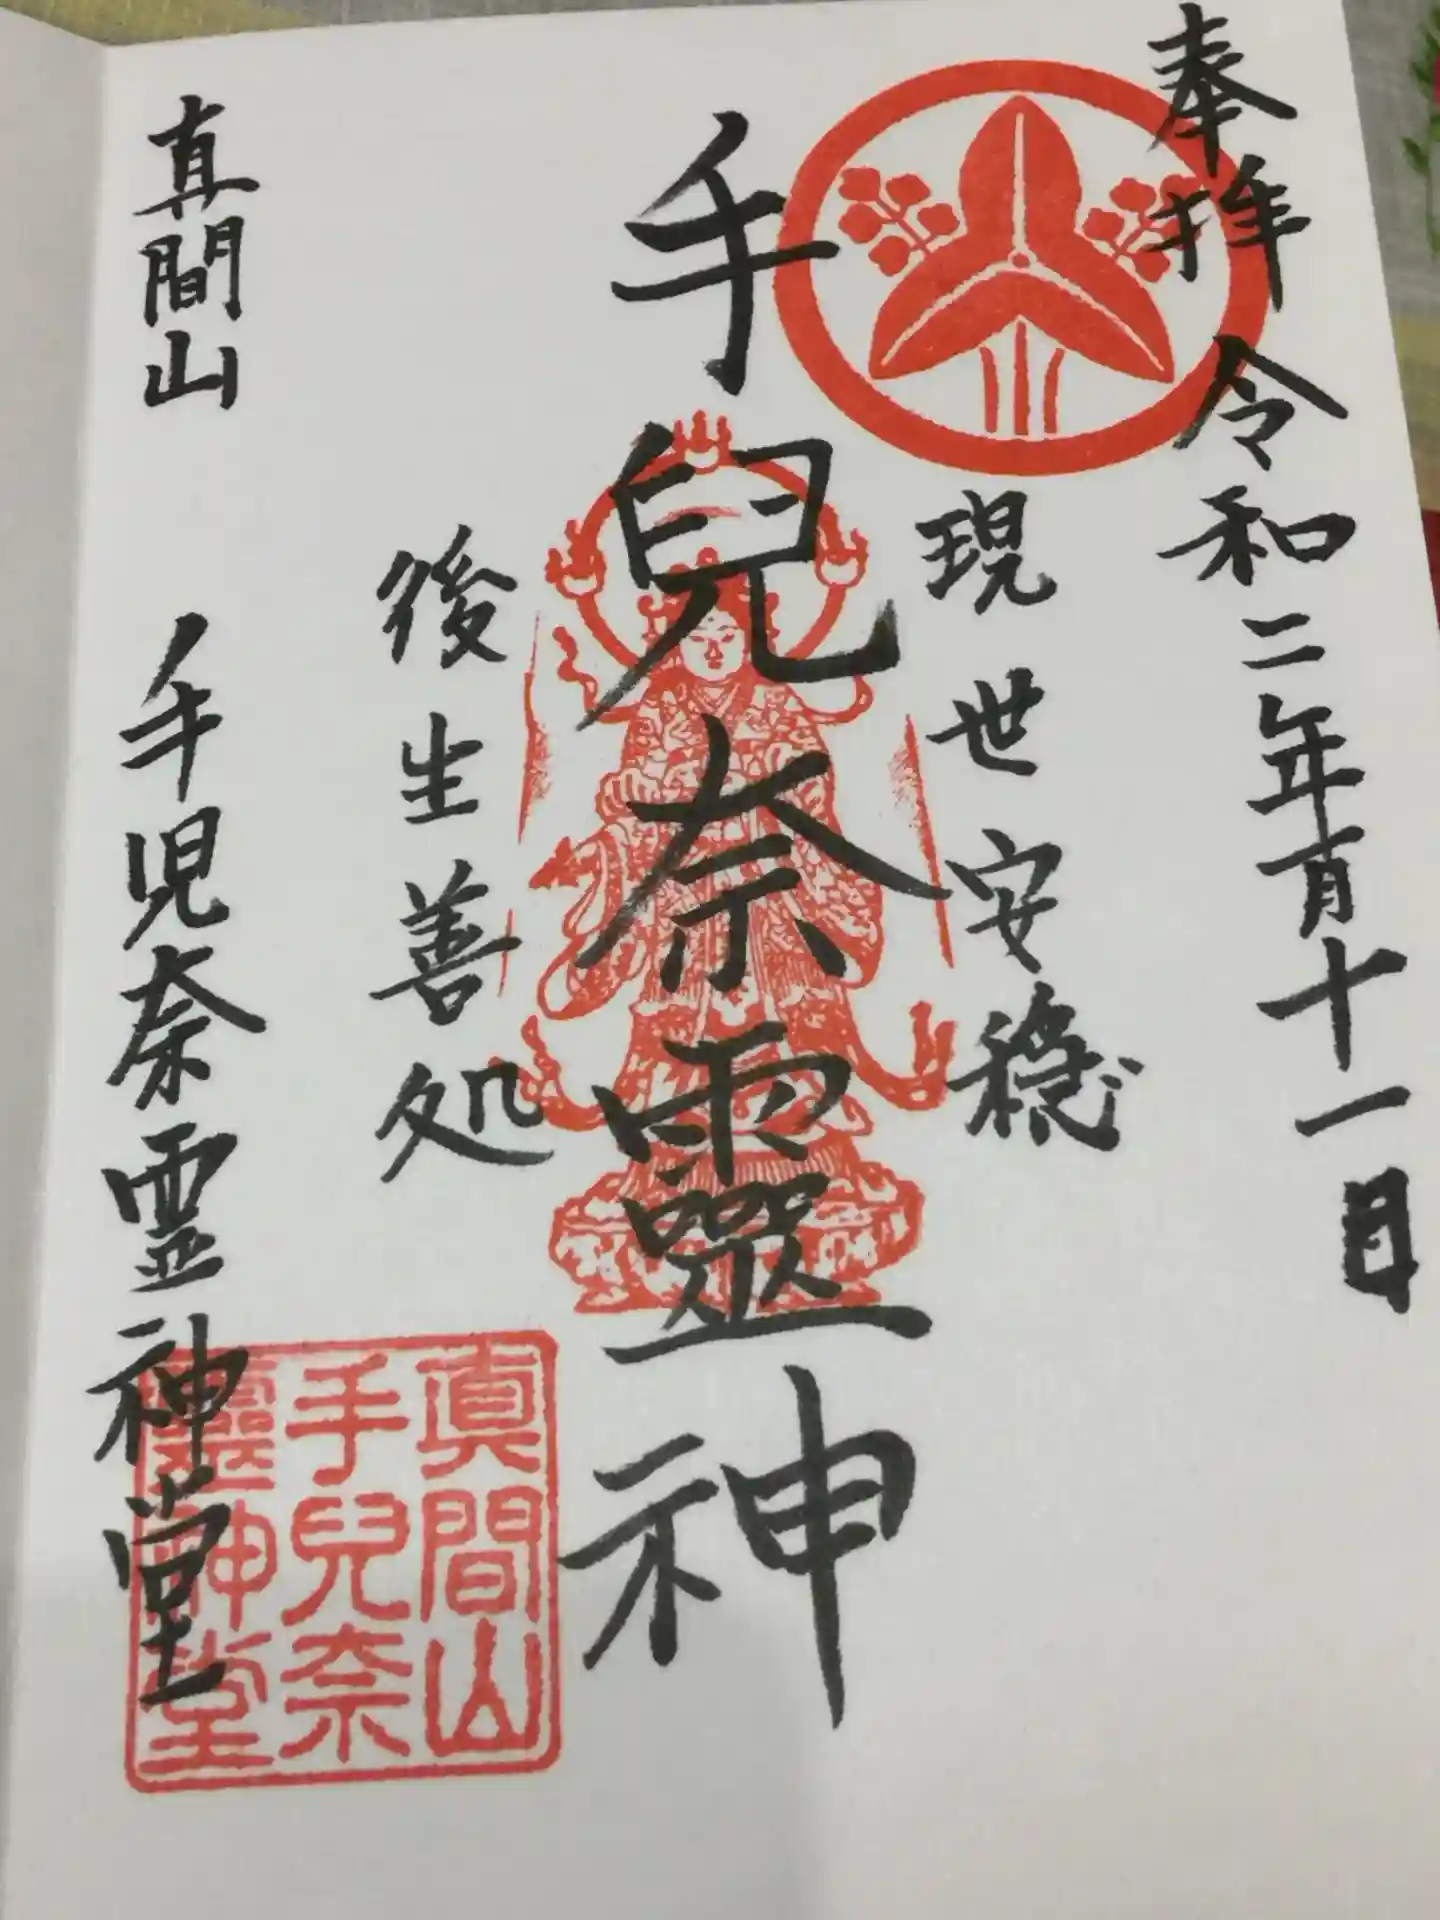 奉拝 令和二年一月十一日
現世安穏
手兒奈靈神
後生善処
真間山 手児奈霊神堂
眞間山
手兒奈
靈神堂